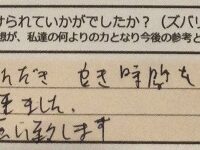 けられていかがでしたか？（ズバリ
想が、私達の何よりの力となり今後の参考と
ただき 良き時間を
ました。
致します